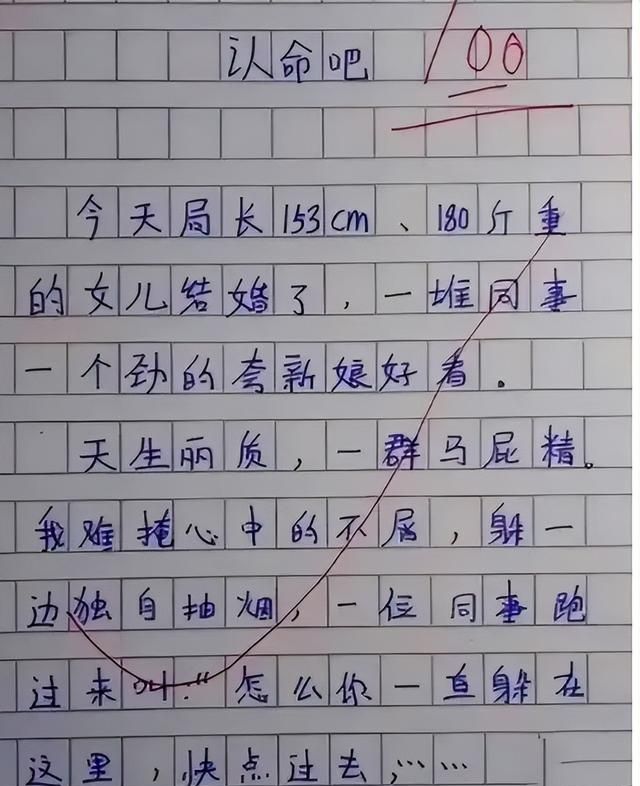 认命吧
100
今天局长153cm、180斤重
的女儿结婚了，一堆同事
一个劲的夸新娘好看。
天生丽质，一群马屁精。
我难掩心中的不屑，躲一
边独自抽烟，一位同事跑
过来叫:“怎么你一直躲在
这里，快点过去,……